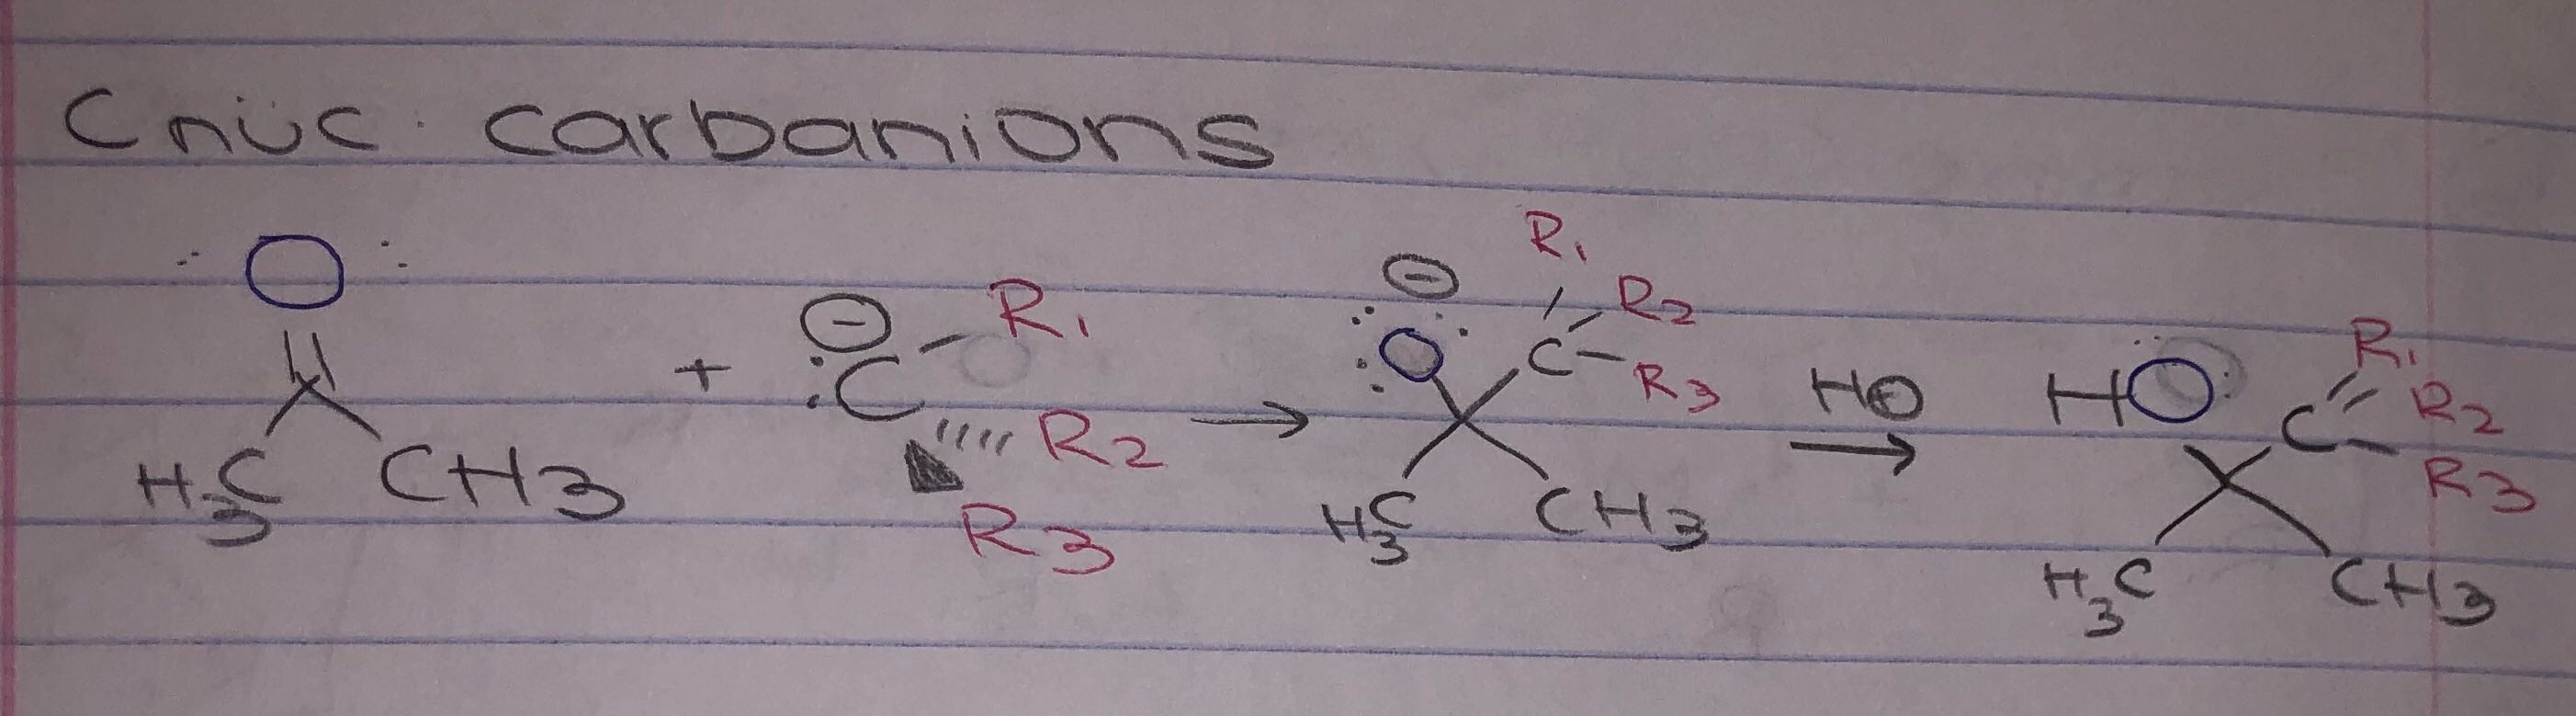 C nuc. carbanions
:O:
H3C CH3
+
⊖
:C R1 R2 R3
→
⊖
:O: C R1 R2 R3
H3C CH3
H⊕
→
HO: C R1 R2 R3
H3C CH3